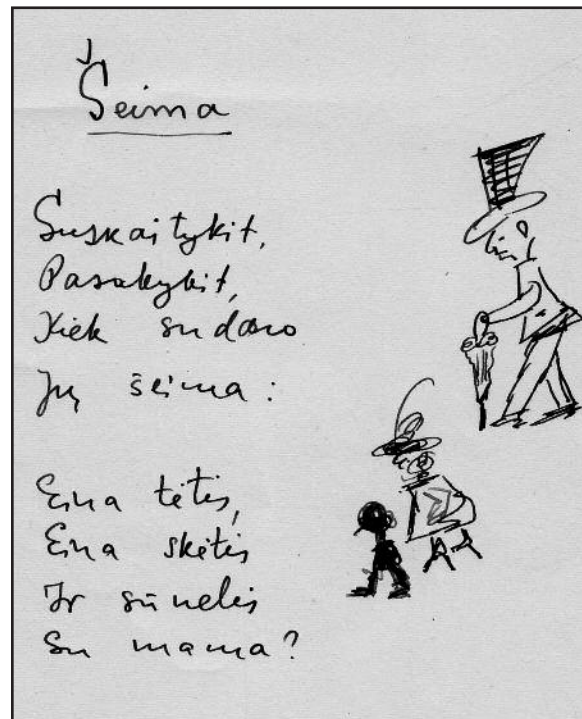 Šeima
Suskaitykit,
Pasakykit,
Kiek sudaro
Jų šeima:
Eina tėtis,
Eina skėtis
Ir sūnelis
Su mama?